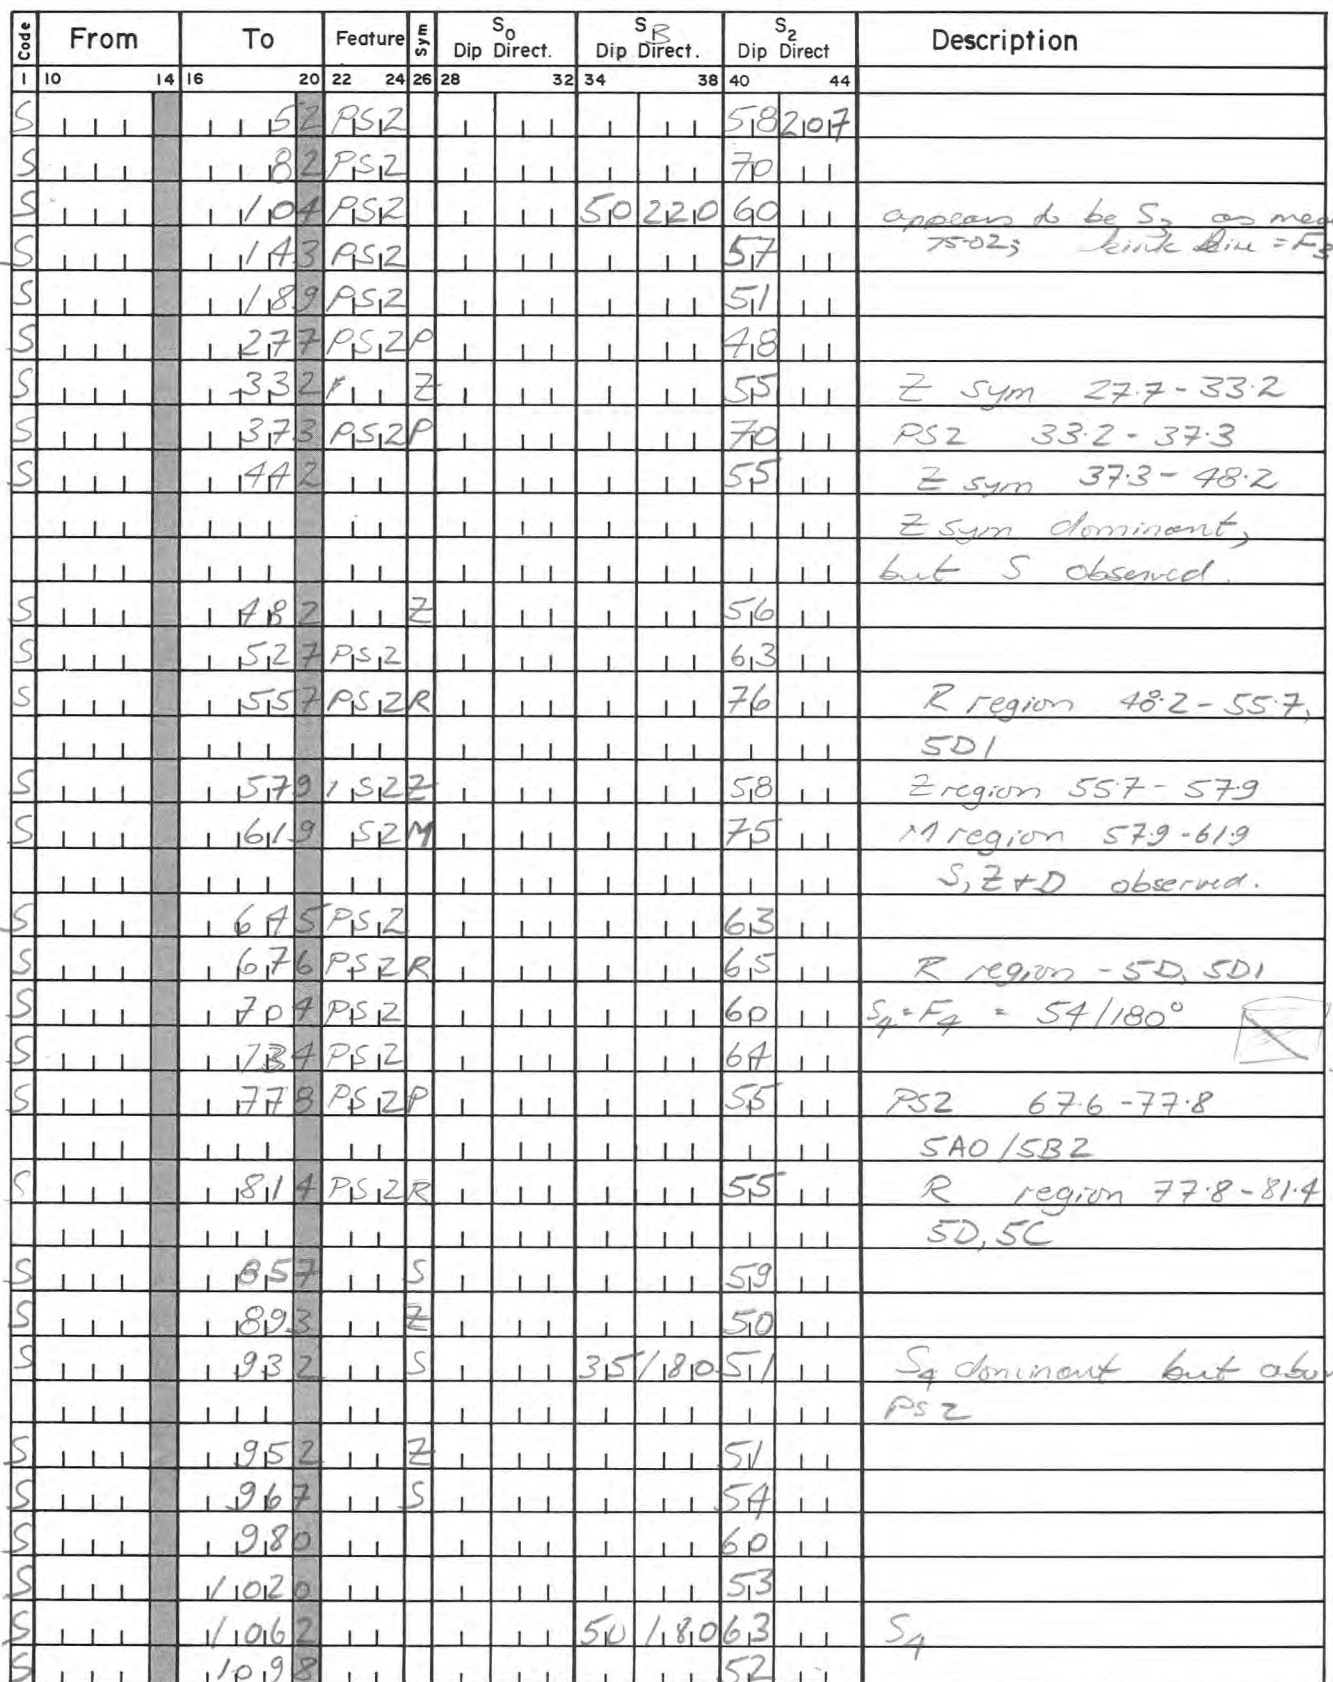 Code From To Feature Sym S0 Dip Direct. SB Dip Direct. S2 Dip Direct Description
1 10 14 16 20 22 24 26 28 32 34 38 40 44
S 52 PS2 58 207
S 82 PS2 70
S 104 PS2 50 220 60 appears to be S3 as
S 143 PS2 57 75-02; kink = F3
S 189 PS2 51
S 277 PS2 P 48
S 332 Z 55 Z sym 27.7-33.2
S 373 PS2 P 70 PS2 33.2-37.3
S 442 55 Z sym 37.3-48.2
Z sym dominant,
but S observed.
S 482 Z 56
S 527 PS2 63
S 557 PS2 R 76 R region 48.2-55.7,
5D1
S 579 S2 Z 58 Z region 55.7-57.9
S 619 S2 M 75 M region 57.9-61.9
S, Z+D observed.
S 645 PS2 63
S 676 PS2 R 65 R region - 5D, 5D1
S 704 PS2 60 S4=F4 = 54/180°
S 734 PS2 64
S 778 PS2 P 55 PS2 67.6-77.8
5A0/5B2
S 814 PS2 R 55 R region 77.8-81.4
5D, 5C
S 857 S 59
S 893 Z 50
S 932 S 35 180 51 S4 dominant but
PS2
S 952 Z 51
S 967 S 54
S 980 60
S 1020 53
S 1062 50 180 63 S4
S 1098 52